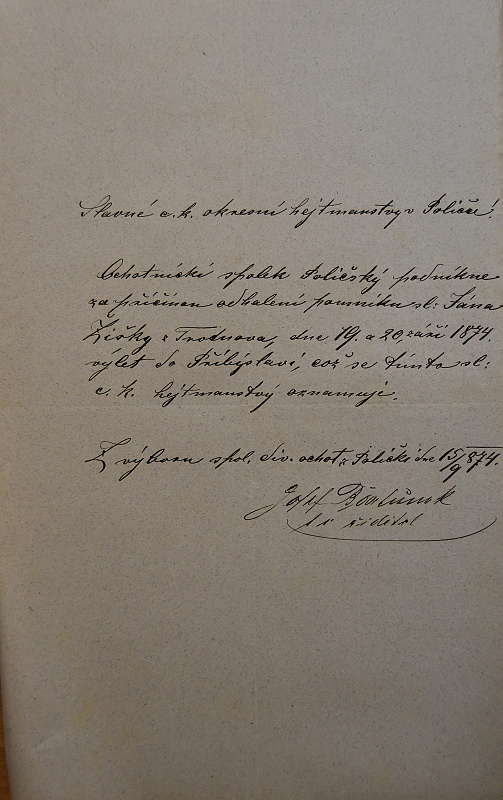 Slavné c. k. okresní hejtmanstvy v Poličce!
Ochotnický spolek Poličský podnikne
za příčinou odhalení pomníku sl: Jána
Žižky z Trocnova, dne 19. a 20. září 1874.
výlet do Přibyslavi, což se tímto sl:
c. k. hejtmanstvý oznamuje.
Z výboru spol. div. ochot. z Poličky dne 15/9 874.
Josef
ředitel